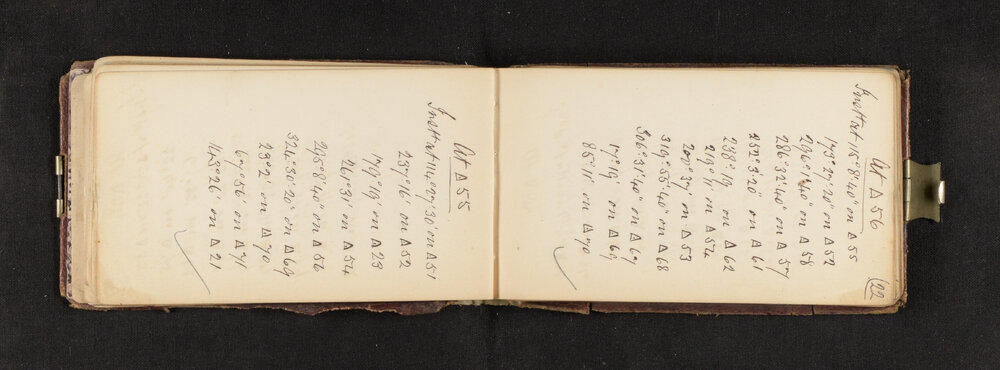 22
At Δ 56
Inst at 115°8'40" on Δ 55
173°27'20" on Δ 52
296°1'40" on Δ 58
286°32'40" on Δ 57
232°3'20" on Δ 61
238°19 on Δ 62
219°11 on Δ 54
200°37' on Δ 53
319°55'40" on Δ 68
306°31'40" on Δ 67
17°19' on Δ 69
85°11' on Δ 70
At Δ 55
Inst at 114°27'30" on Δ 51
237°16' on Δ 52
179°19' on Δ 23
261°31' on Δ 54
295°8'40" on Δ 56
324°30'20" on Δ 69
23°2' on Δ 70
67°56' on Δ 71
143°26' on Δ 21